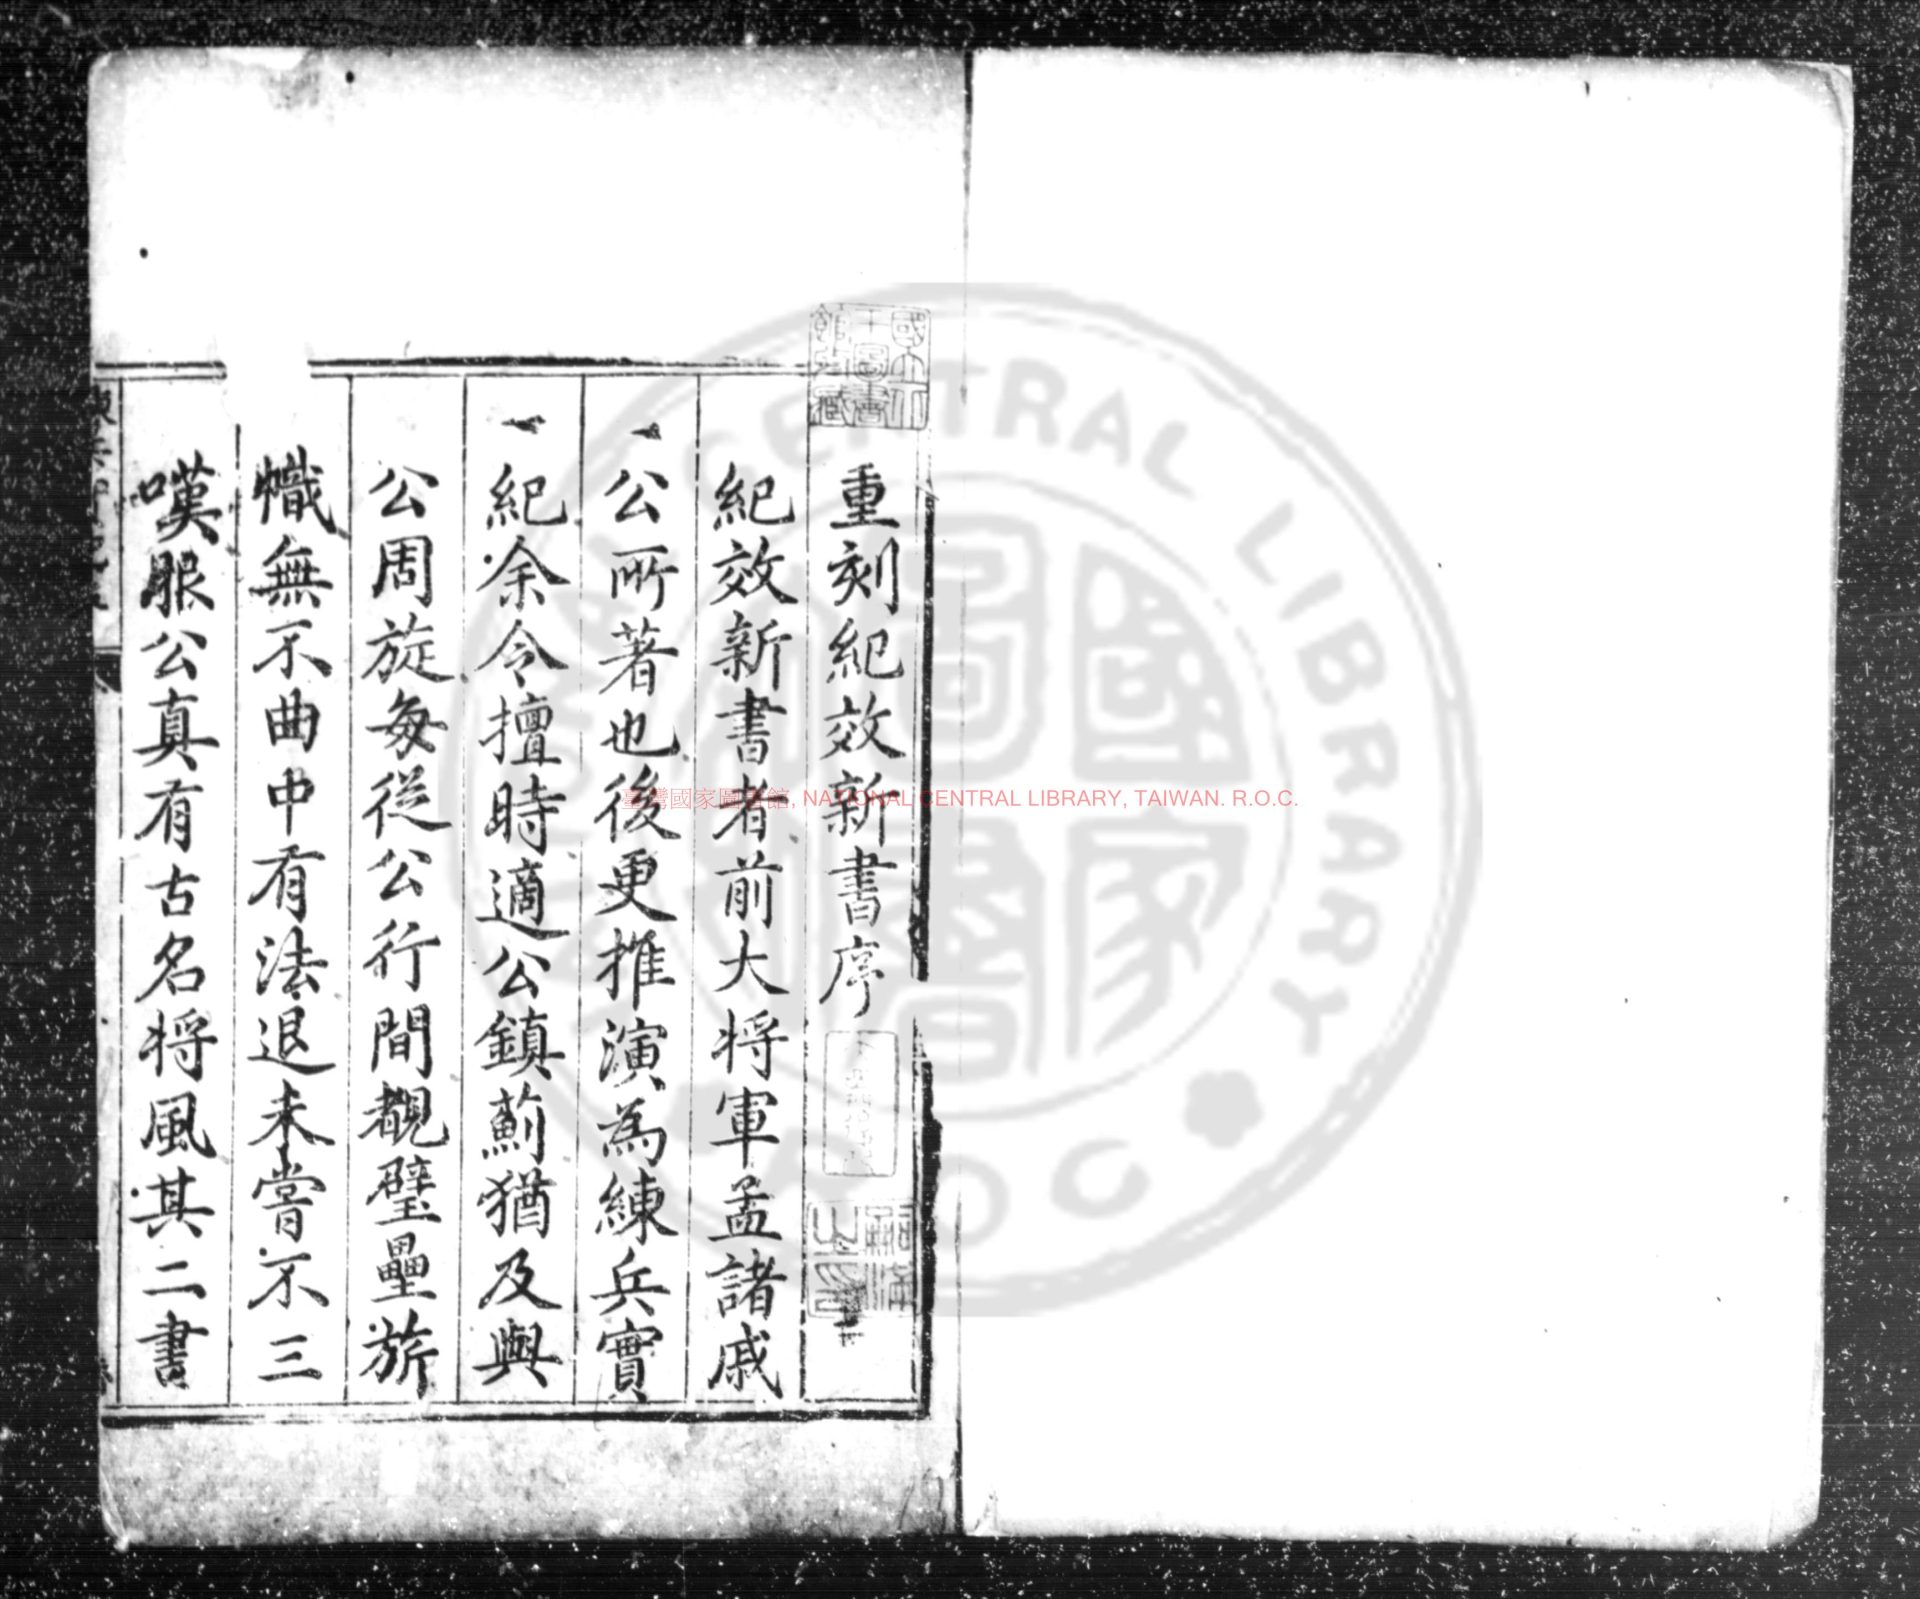 重刻紀效新書序
紀效新書者前大将軍孟諸戚
公所著也後更推演為練兵實
紀余令擅時適公鎮薊猶及與
公周旋每從公行間覩壁壘旂
幟無不曲中有法退未嘗不三
嘆服公真有古名将風其二書
國立中央圖書館收藏
臺灣國家圖書館, NATIONAL CENTRAL LIBRARY, TAIWAN. R.O.C.
NATIONAL CENTRAL LIBRARY
R.O.C
國家圖書館